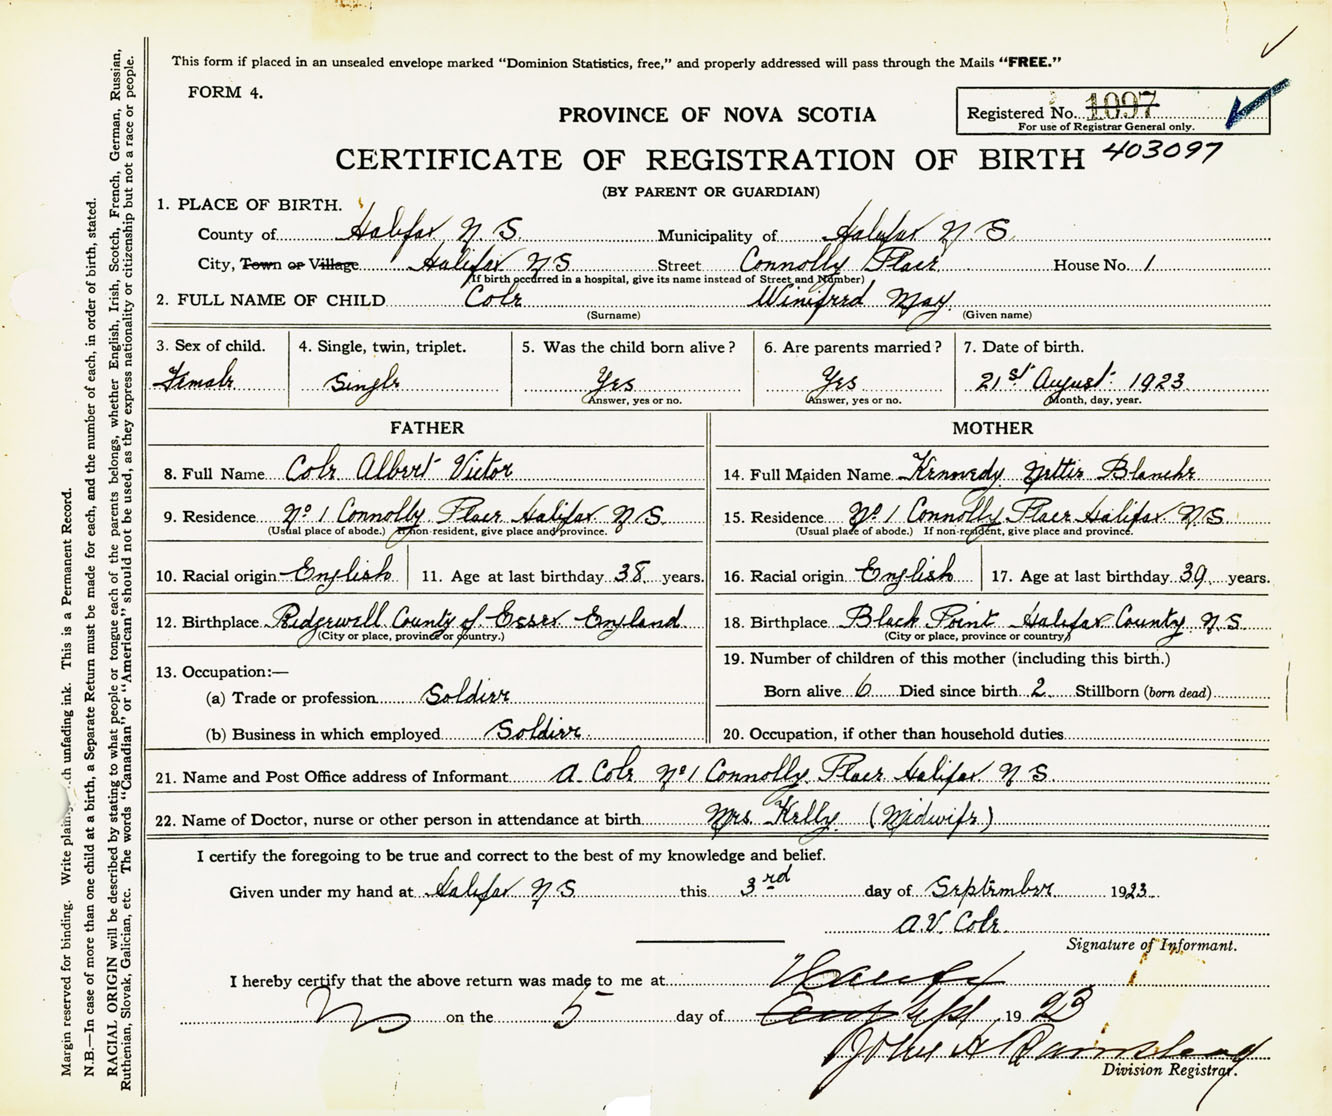 This form if placed in an unsealed envelope marked "Dominion Statistics, free," and properly addressed will pass through the Mails "FREE."
FORM 4.
PROVINCE OF NOVA SCOTIA
Registered No. 1097
For use of Registrar General only.
CERTIFICATE OF REGISTRATION OF BIRTH 403097
(BY PARENT OR GUARDIAN)
1. PLACE OF BIRTH.
County of Halifax N. S. Municipality of Halifax N S.
City, Town or Village Halifax N S Street Connolly Place House No. 1
(If birth occurred in a hospital, give its name instead of Street and Number)
2. FULL NAME OF CHILD Cole Winifred May.
(Surname) (Given name)
3. Sex of child. 4. Single, twin, triplet. 5. Was the child born alive? 6. Are parents married? 7. Date of birth.
Female Single Yes Yes 21st August 1923
Answer, yes or no. Answer, yes or no. Month, day, year.
FATHER MOTHER
8. Full Name Cole Albert Victor 14. Full Maiden Name Kennedy Nettie Blanche
9. Residence No 1 Connolly Place Halifax N.S. 15. Residence No 1 Connolly Place Halifax N.S.
(Usual place of abode.) If non-resident, give place and province. (Usual place of abode.) If non-resident, give place and province.
10. Racial origin English 11. Age at last birthday 38 years. 16. Racial origin English 17. Age at last birthday 39 years.
12. Birthplace Ridgewell County of Essex England 18. Birthplace Black Point Halifax County N S
(City or place, province or country.) (City or place, province or country)
19. Number of children of this mother (including this birth.)
13. Occupation:—
(a) Trade or profession Soldier Born alive 6 Died since birth 2 Stillborn (born dead)
(b) Business in which employed Soldier 20. Occupation, if other than household duties
21. Name and Post Office address of Informant A. Cole No 1 Connolly Place Halifax N S.
22. Name of Doctor, nurse or other person in attendance at birth Mrs. Kelly (Midwife)
I certify the foregoing to be true and correct to the best of my knowledge and belief.
Given under my hand at Halifax N S this 3rd day of September 1923
A.V. Cole.
Signature of Informant.
I hereby certify that the above return was made to me at Halifax
N S on the 5 day of Sept 1923
Division Registrar.
Margin reserved for binding. Write plainly with unfading ink. This is a Permanent Record.
N.B.—In case of more than one child at a birth, a Separate Return must be made for each, and the number of each, in order of birth, stated.
RACIAL ORIGIN will be described by stating to what people or tongue each of the parents belongs, whether English, Irish, Scotch, French, German, Russian,
Ruthenian, Slovak, Galician, etc. The words "Canadian" or "American" should not be used, as they express nationality or citizenship but not a race or people.